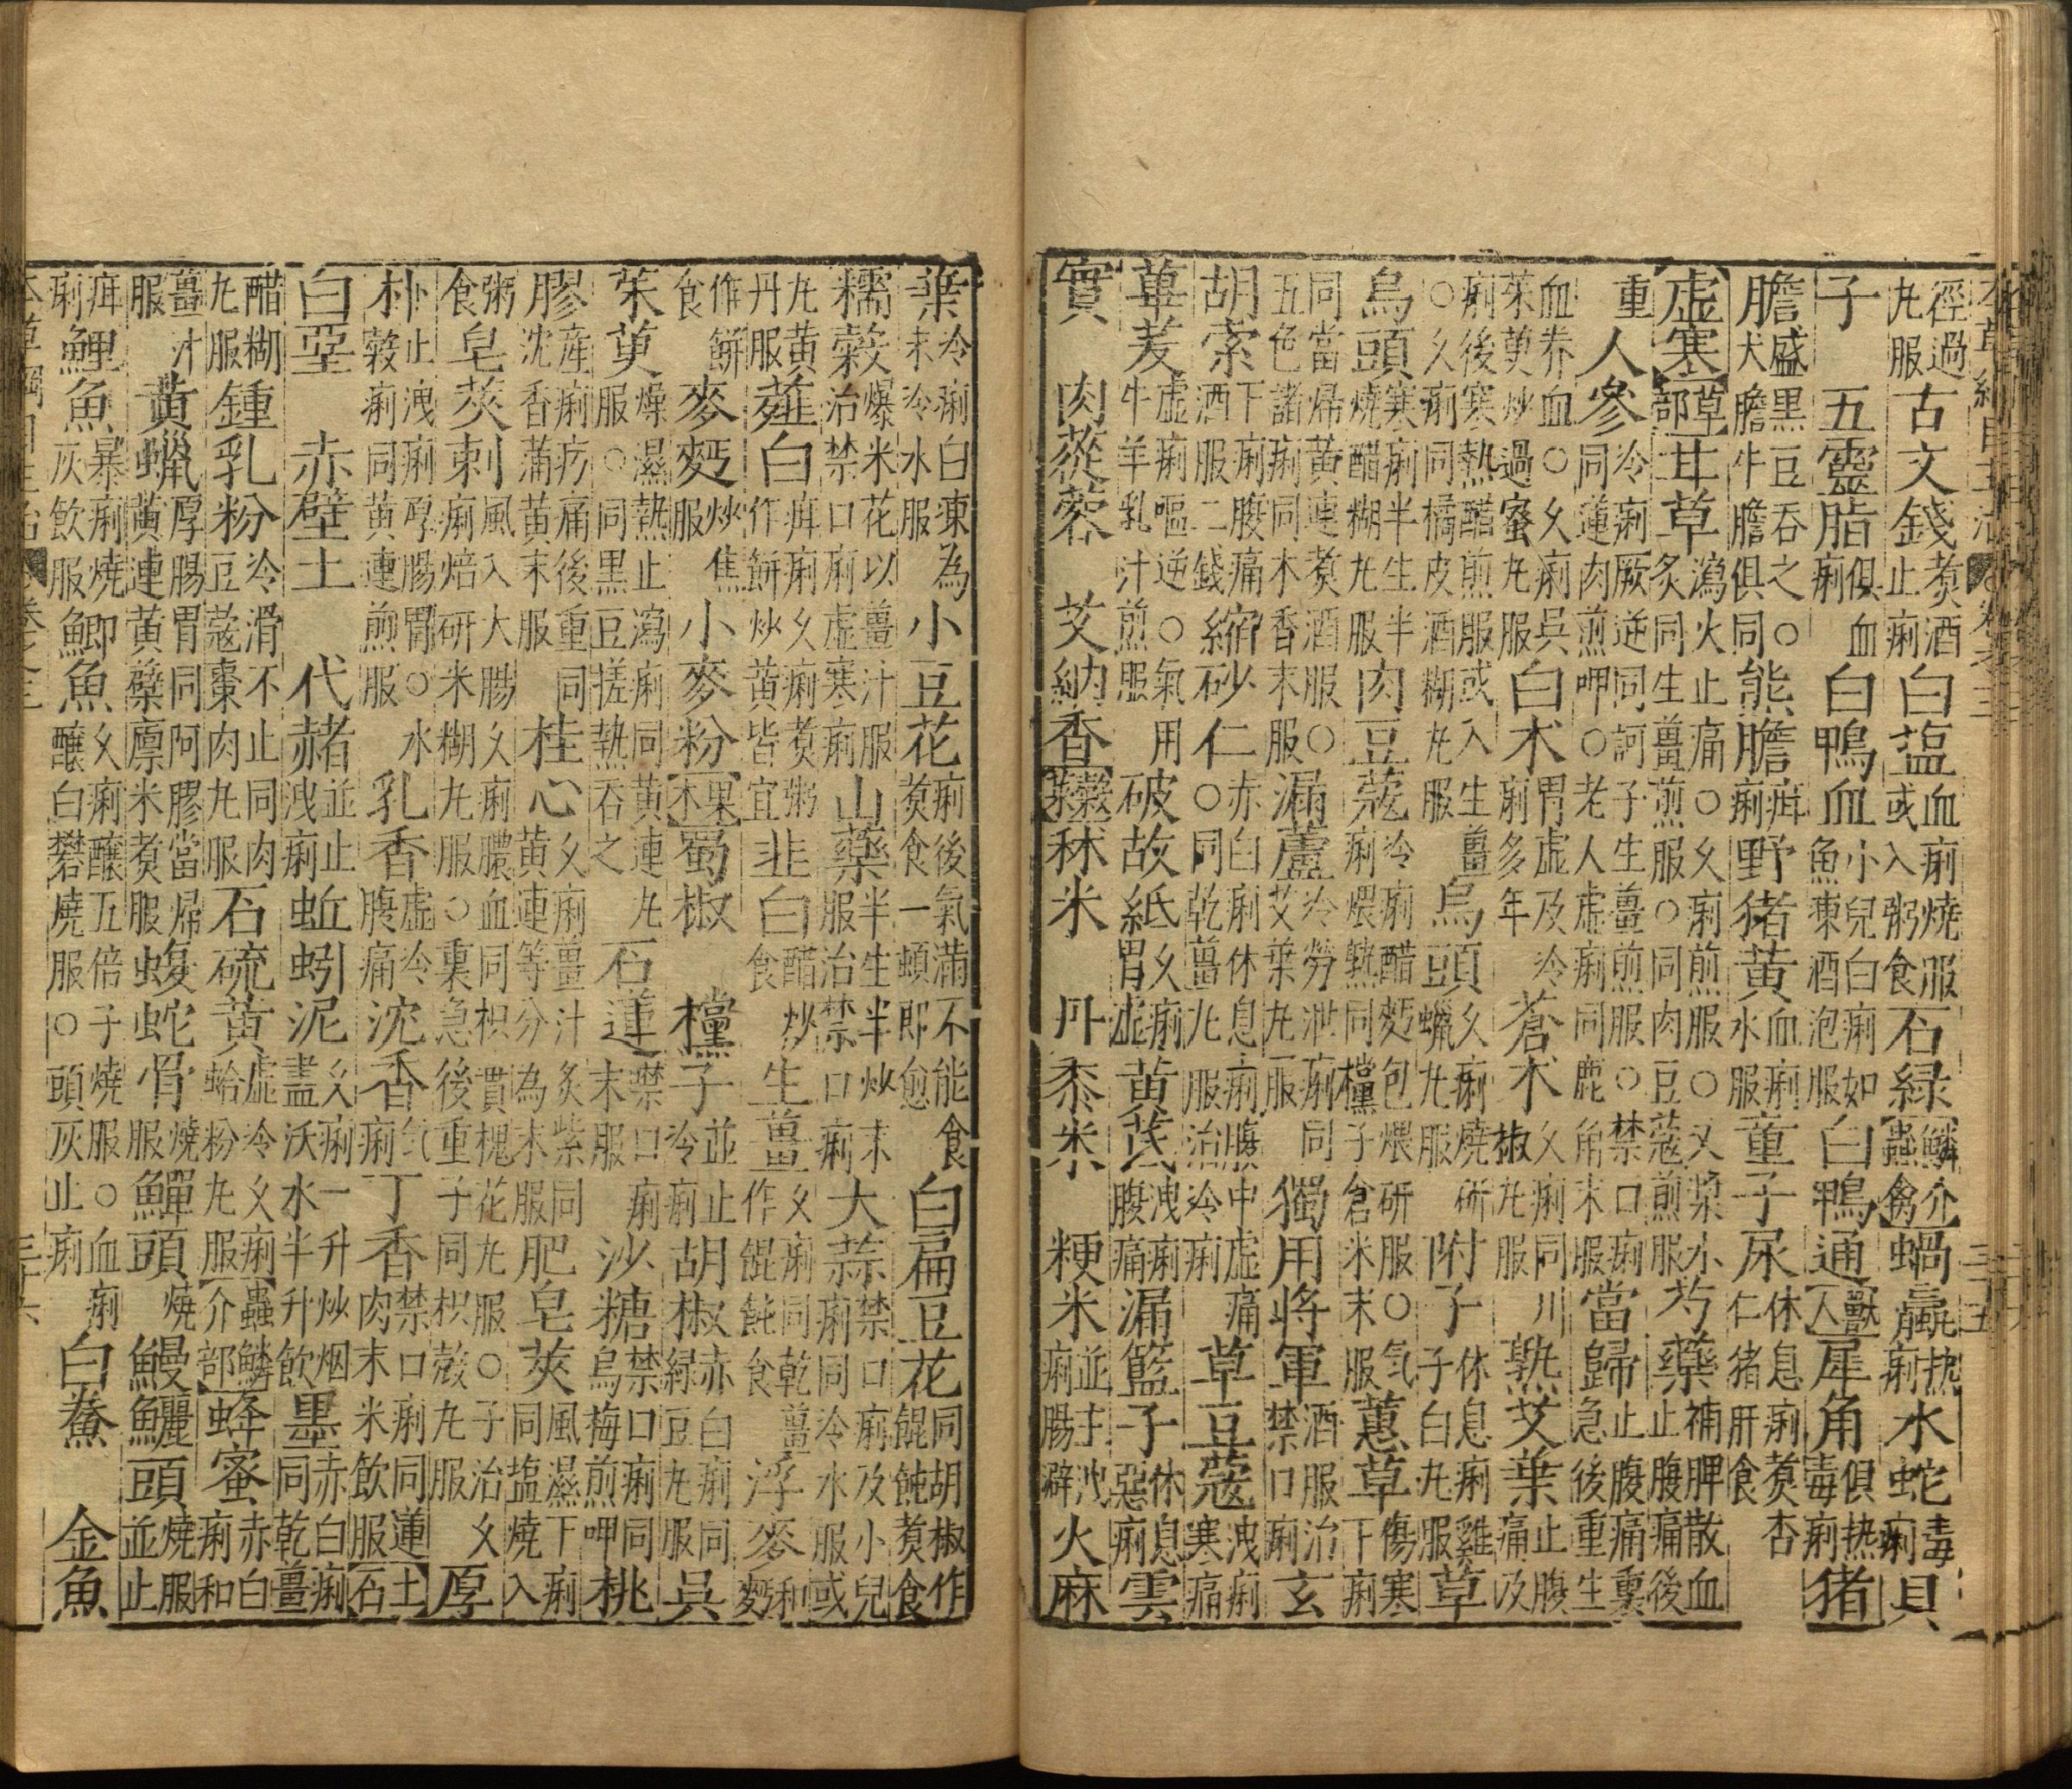 本草綱目主治 卷之三 三十五
徑過丸服 古文錢 煑酒止痢 白塩 血痢燒服或入粥食 石緑 鱗介蟲禽 蝸蠃 热痢 水蛇 毒痢 貝
子 五靈脂 俱血痢 白鴨血 小兒白痢如魚凍酒泡服 白鴨通 獸人 犀角 俱热毒痢 猪
膽 膽盛黑豆吞之○犬膽牛膽俱同 熊膽 疳痢 野猪黃 血痢水服 童子尿 休息痢煑杏仁猪肝食
虛寒 草部 甘草 瀉火止痛○久痢煎服○又漿水炙同生薑煎服○同肉豆蔻煎服 芍藥 補脾散血止腹痛後
重 人參 冷痢厥逆同訶子生薑煎服○禁口痢同蓮肉煎呷○老人虛痢同鹿角末服 當歸 止腹痛裏急後重生
血养血○久痢吳茱萸炒過蜜丸服 白术 胃虛及冷痢多年 蒼术 久痢同川椒丸服 熟艾葉 止腹痛及
痢後寒熱醋煎服或入生薑○久痢同橘皮酒糊丸服 烏頭 久痢燒研蠟丸服 附子 休息痢雞子白丸服 草
烏頭 寒痢半生半燒醋糊丸服 肉豆蔻 冷痢醋麫包煨研服○气痢煨熟同欓子倉米末服 蕙草 傷寒下痢
同當歸黃連煑酒服○五色諸痢同木香末服 漏蘆 冷勞泄痢同艾葉丸服 獨用將軍 酒服治禁口痢 玄
胡索 下痢腹痛酒服二錢 縮砂仁 赤白痢休息痢腹中虛痛○同乾薑丸服治冷痢 草豆蔻 洩痢寒痛
蓽茇 虛痢嘔逆○氣用牛羊乳汁煎服 破故紙 久痢胃虛 黃芪 洩痢腹痛 漏籃子 休息惡痢 雲
實 肉蓯蓉 艾納香 菜穀 秫米 丹黍米 粳米 並主洩痢腸澼 火麻
葉 冷痢白凍為末冷水服 小豆花 痢後氣滿不能食煑食一頓即愈 白扁豆花 同胡椒作餛飩煑食
糯穀 爆米花以薑汁服治禁口痢虛寒痢 山藥 半生半炒末服治禁口痢 大蒜 禁口痢及小兒痢同冷水服或
丸黃丹服 薤白 疳痢久痢煑粥作餅炒黃皆宜 韭白 醋炒食 生薑 久痢同乾薑作餛飩食 浮麥 和麫
作餅食 麥麫 炒焦服 小麥粉 果木 蜀椒 欓子 並止冷痢 胡椒 赤白痢同緑豆丸服 吳
茱萸 燥濕熱止瀉痢同黃連丸服○同黑豆搓熱吞之 石蓮 禁口痢末服 沙糖 禁口痢同烏梅煎呷 桃
膠 產痢疞痛後重同沈香蒲黃末服 桂心 久痢薑汁炙紫同黃連等分為末服 肥皂莢 風濕下痢同塩燒入
粥食 皂莢刺 風入大腸久痢膿血同枳實槐花丸服○子治久痢焙研米糊丸服○裏急後重子同枳殼丸服 厚
朴 止洩痢厚腸胃○水穀痢同黃連煎服 乳香 虛冷腹痛 沈香 气痢 丁香 禁口痢同蓮肉末米飲服 土石
白堊 赤壁土 代赭 並止洩痢 蚯蚓泥 久痢一升炒烟盡沃水半升飲 墨 赤白痢同乾薑
醋糊丸服 鍾乳粉 冷滑不止同肉豆蔻棗肉丸服 石硫黃 虛冷久痢蛤粉丸服 蟲鱗介部 蜂蜜 赤白痢和
薑汁服 黃蠟 厚腸胃同阿膠當歸黃連黃蘗廪米煑服 蝮蛇骨 燒服 鱓頭 燒 鰻鱺頭 燒服並止
疳痢 鯉魚 暴痢燒灰飲服 鯽魚 久痢釀五倍子燒服○血痢釀白礬燒服○頭灰止痢 白鯗 金魚
本草綱目主治 卷之三 三十六